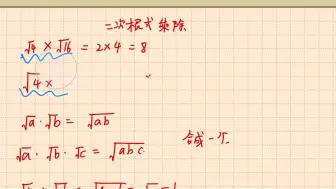 二次根式乘除
√4 × √16 = 2×4 = 8
√4×
√a · √b = √ab
合成一个
√a · √b · √c = √abc